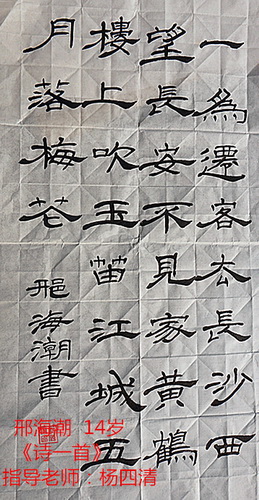 一為遷客去長沙西
望長安不見家黄鶴
樓上吹玉笛江城五
月落梅花
邢海潮書
邢海潮 14岁
《诗一首》
指导老师：杨四清